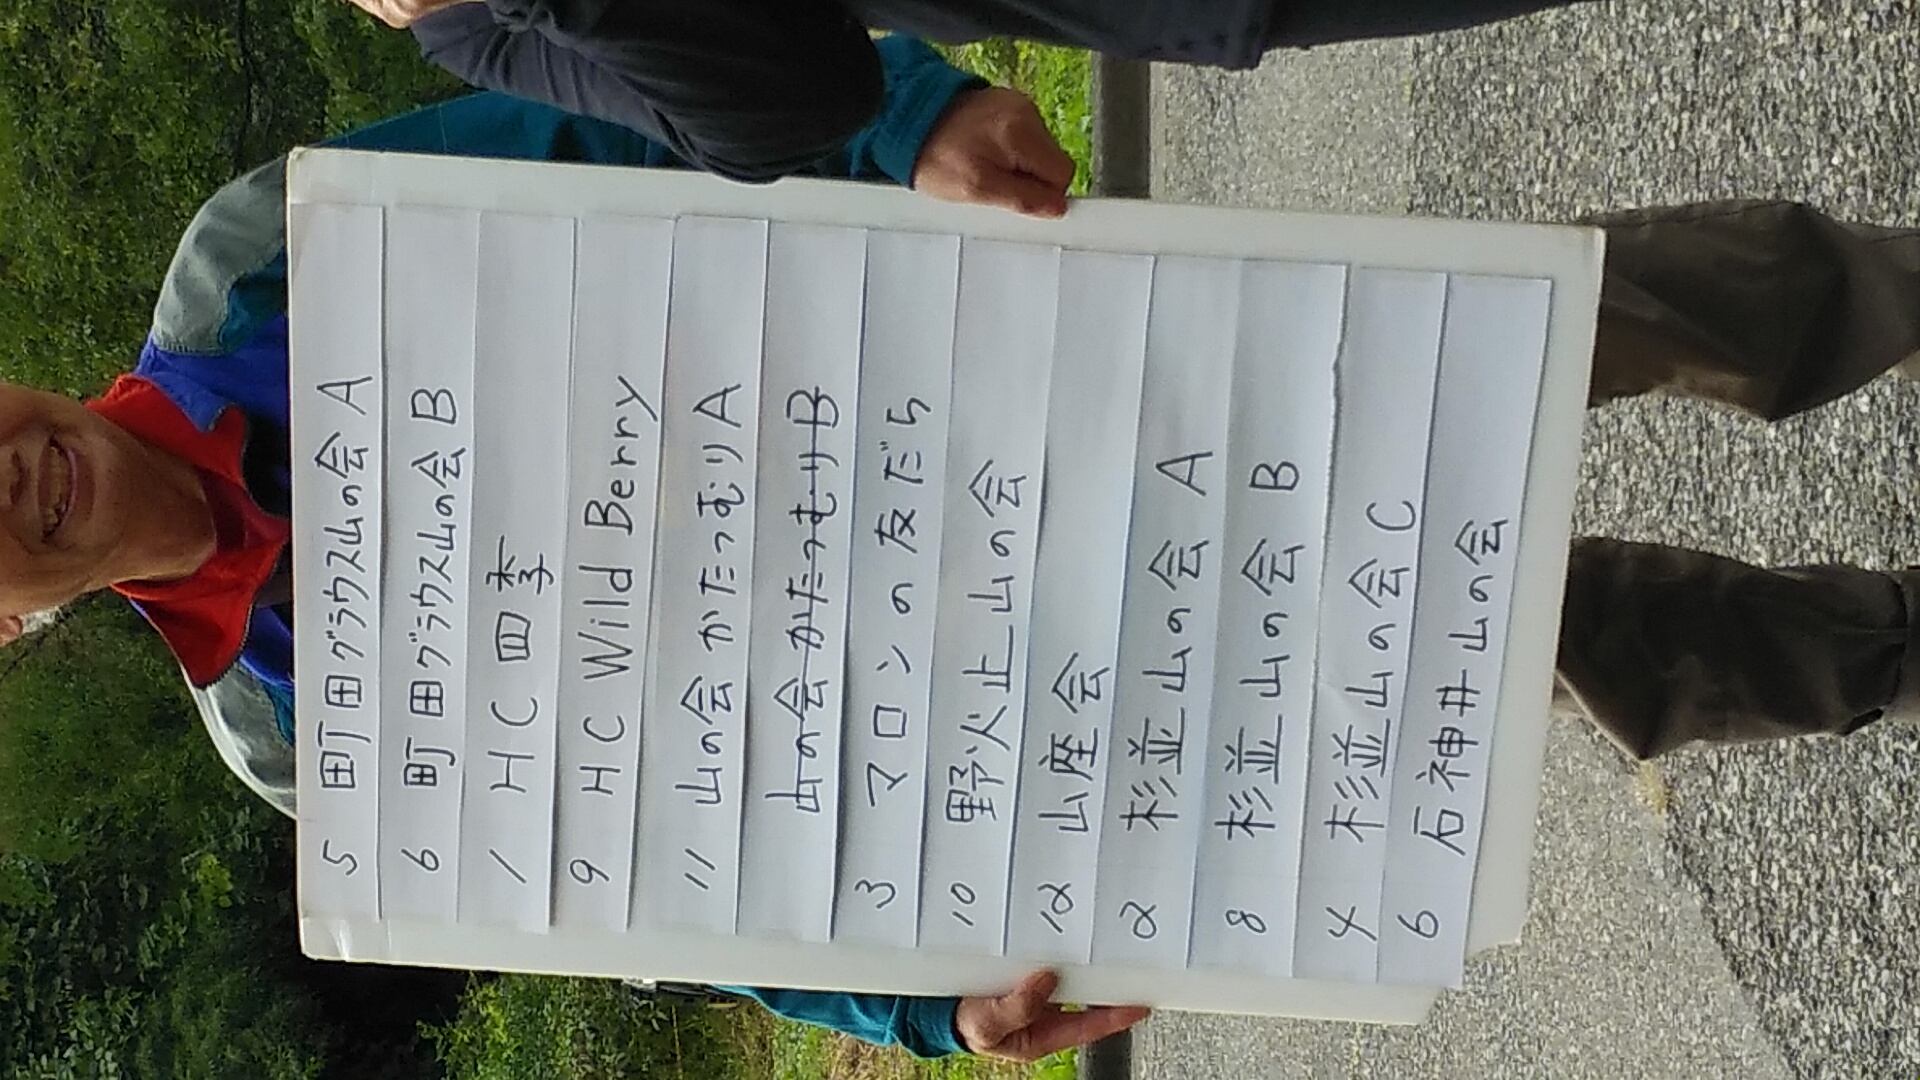 5 町田グラウス山の会 A
6 町田グラウス山の会 B
1 HC 四季
9 HC Wild Berry
11 山の会 かたつむり A
山の会 かたつむり B
3 マロンの友だち
10 野火止山の会
12 山座会
2 杉並山の会 A
8 杉並山の会 B
4 杉並山の会 C
6 石神井山の会